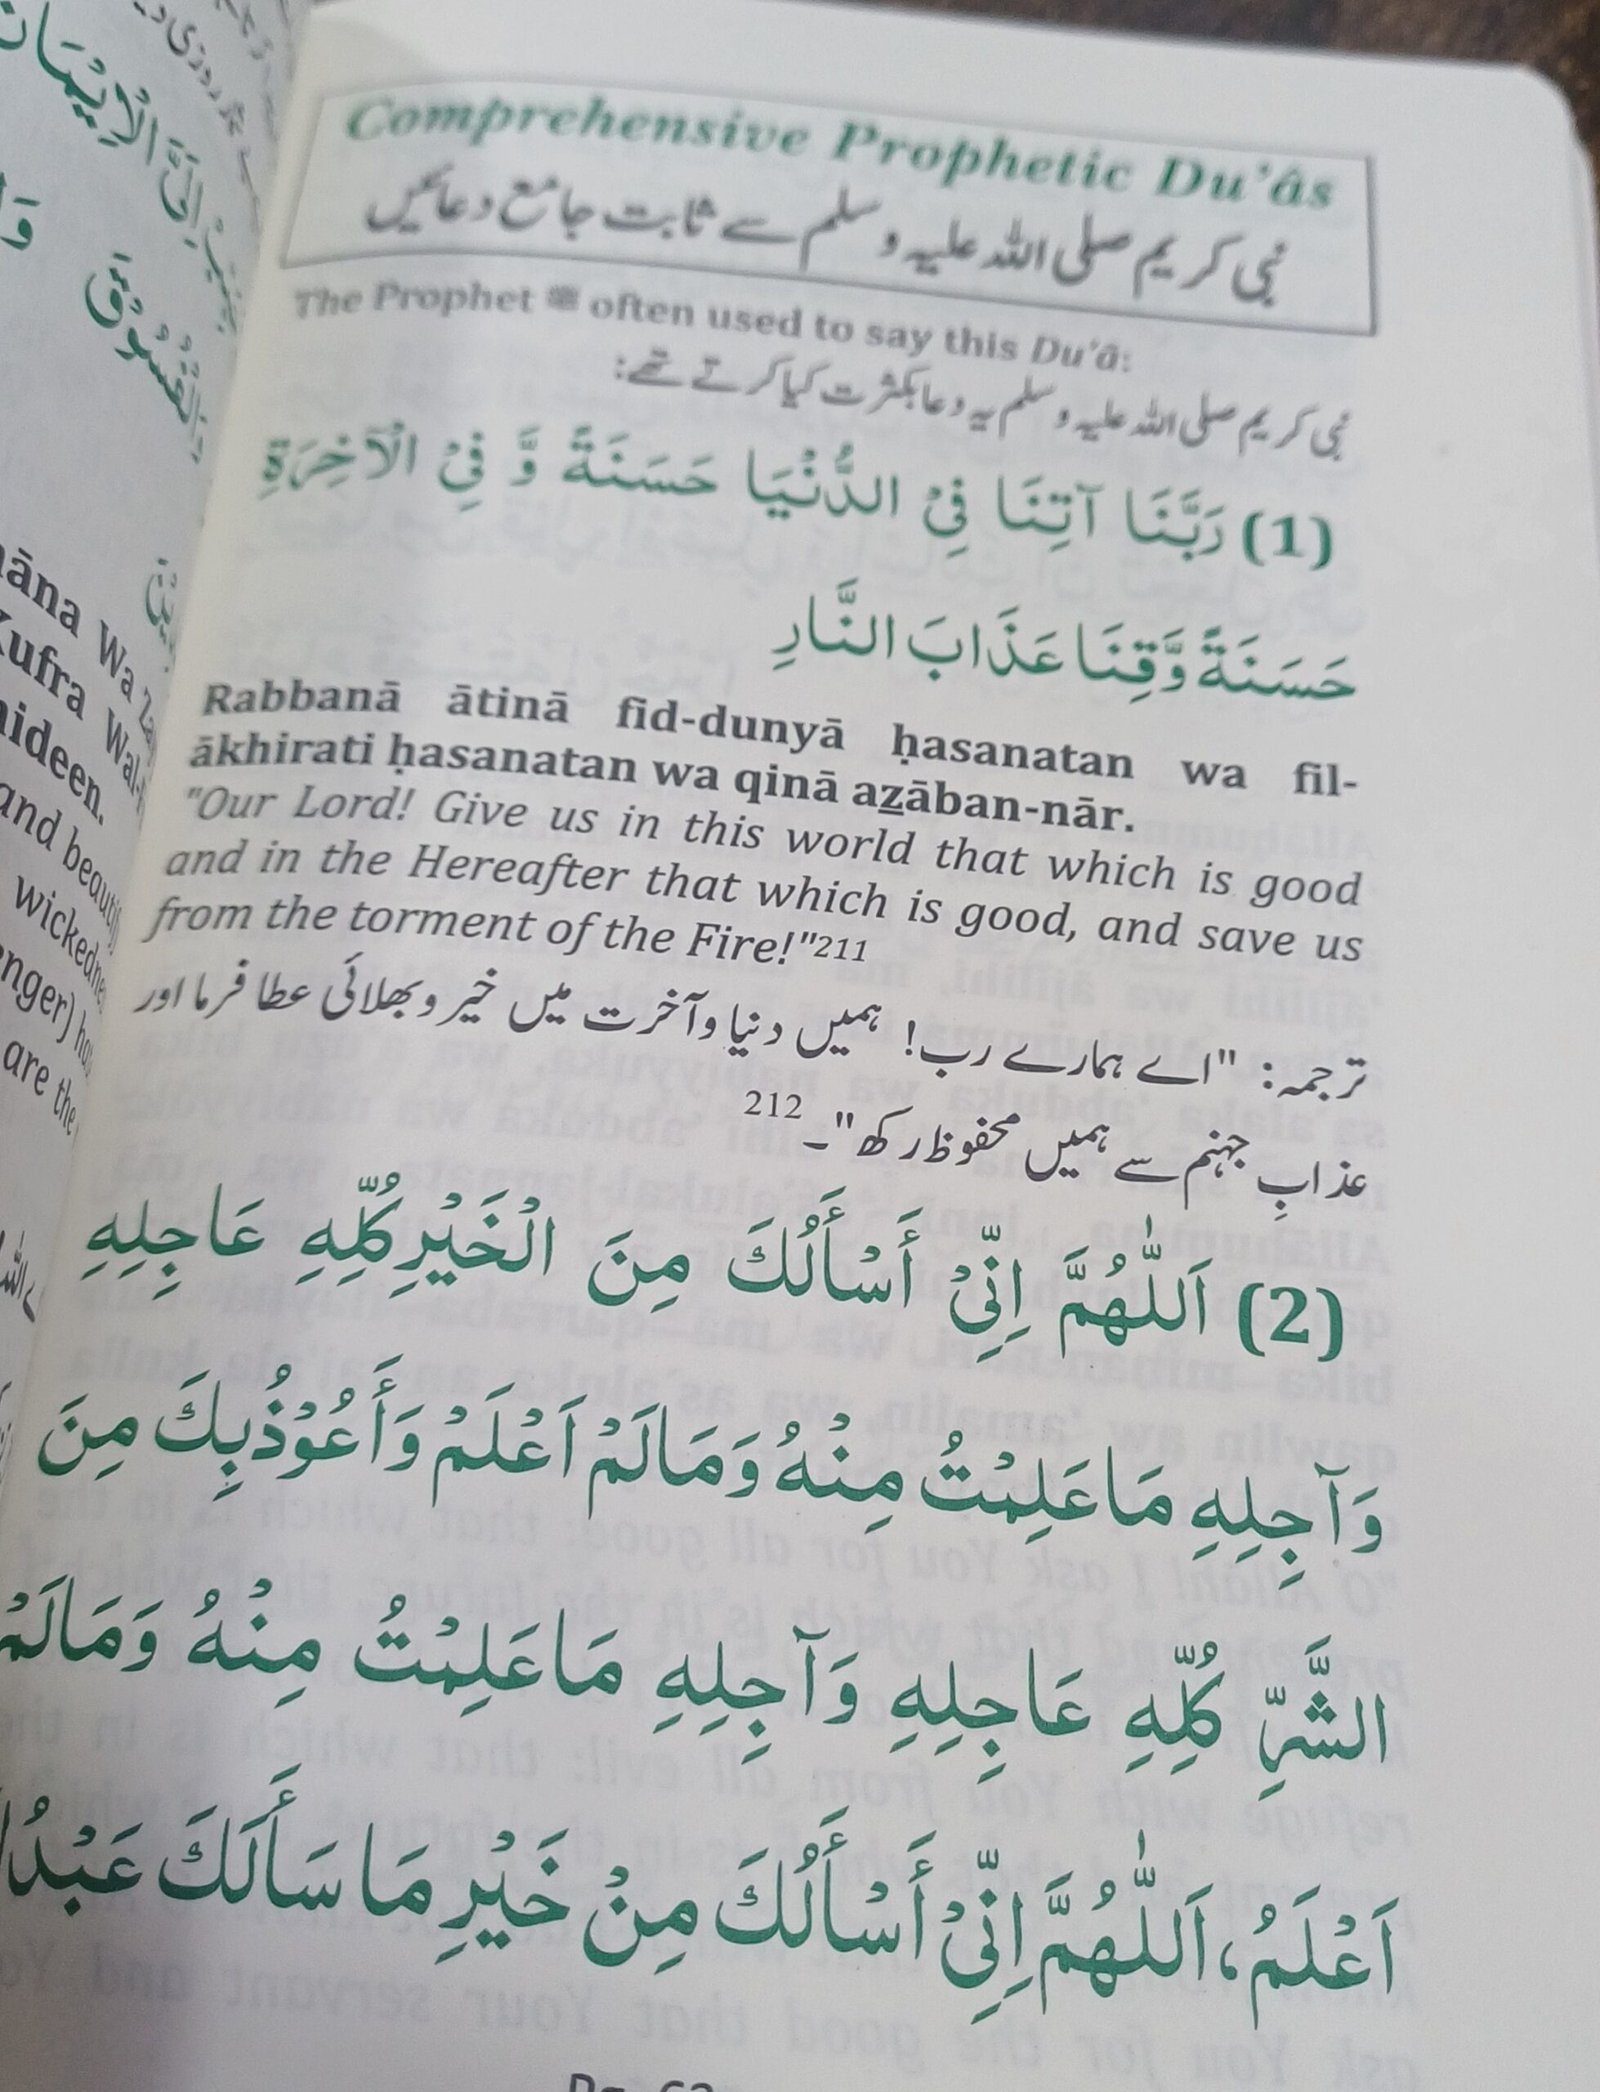 Comprehensive Prophetic Du'âs
نبی کریم صلی اللہ علیہ وسلم سے ثابت جامع دعائیں
The Prophet ﷺ often used to say this Du'ā:
نبی کریم صلی اللہ علیہ وسلم یہ دعا بکثرت کیا کرتے تھے:
(1) رَبَّنَا آتِنَا فِيْ الدُّنْيَا حَسَنَةً وَّ فِيْ الْآخِرَةِ
حَسَنَةً وَّقِنَا عَذَابَ النَّارِ
Rabbanā ātinā fid-dunyā ḥasanatan wa fil-
ākhirati ḥasanatan wa qinā az̲āban-nār.
"Our Lord! Give us in this world that which is good
and in the Hereafter that which is good, and save us
from the torment of the Fire!"211
ترجمہ: "اے ہمارے رب! ہمیں دنیا وآخرت میں خیر وبھلائی عطا فرما اور
عذابِ جہنم سے ہمیں محفوظ رکھ"۔212
(2) اَللّٰهُمَّ اِنِّيْ أَسْأَلُكَ مِنَ الْخَيْرِ كُلِّهِ عَاجِلِهِ
وَآجِلِهِ مَا عَلِمْتُ مِنْهُ وَمَا لَمْ اَعْلَمْ وَأَعُوْذُ بِكَ مِنَ
الشَّرِّ كُلِّهِ عَاجِلِهِ وَآجِلِهِ مَا عَلِمْتُ مِنْهُ وَمَا لَمْ
اَعْلَمُ، اَللّٰهُمَّ اِنِّيْ أَسْأَلُكَ مِنْ خَيْرِ مَا سَأَلَكَ